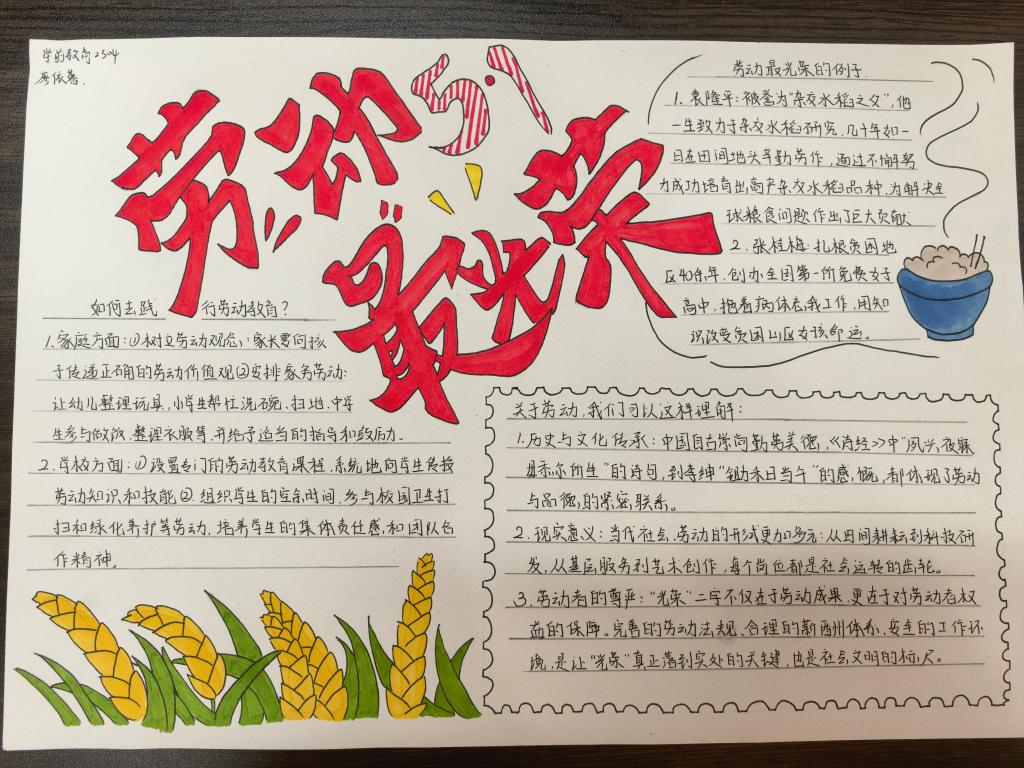 学前教育2304
劳动
5.1
最光荣
劳动最光荣的例子
1. 袁隆平：被誉为“杂交水稻之父”，他
一生致力于杂交水稻研究，几十年如一
日在田间地头辛勤劳作，通过不懈努
力成功培育出高产杂交水稻品种，为解决全
球粮食问题作出了巨大贡献
2. 张桂梅：扎根贫困地
区40余年，创办全国第一所免费女子
高中，拖着病体忘我工作，用知
识改变贫困山区女孩命运。
如何去践 行劳动教育？
1.家庭方面：①树立劳动观念：家长要向孩
子传递正确的劳动价值观②安排家务劳动：
让幼儿整理玩具，小学生帮忙洗碗、扫地，中学
生参与做饭、整理衣服等，并给予适当的指导和鼓励。
2.学校方面：①设置专门的劳动教育课程，系统地向学生传授
劳动知识和技能②.组织学生的空余时间，参与校园卫生打
扫和绿化养护等劳动，培养学生的集体责任感和团队合
作精神。
关于劳动，我们可以这样理解：
1.历史与文化传承：中国自古崇尚勤劳美德，《诗经》中“夙兴夜寐
毋忝尔所生”的诗句，到李绅“锄禾日当午”的感慨，都体现了劳动
与品德的紧密联系。
2.现实意义：当代社会，劳动的形式更加多元：从田间耕耘到科技研
发，从基层服务到艺术创作，每个岗位都是社会运转的齿轮。
3.劳动者的尊严：“光荣”二字不仅在于劳动成果，更在于对劳动者权
益的保障。完善的劳动法规、合理的薪酬体系、安全的工作环
境，是让“光荣”真正落到实处的关键，也是社会文明的标尺。